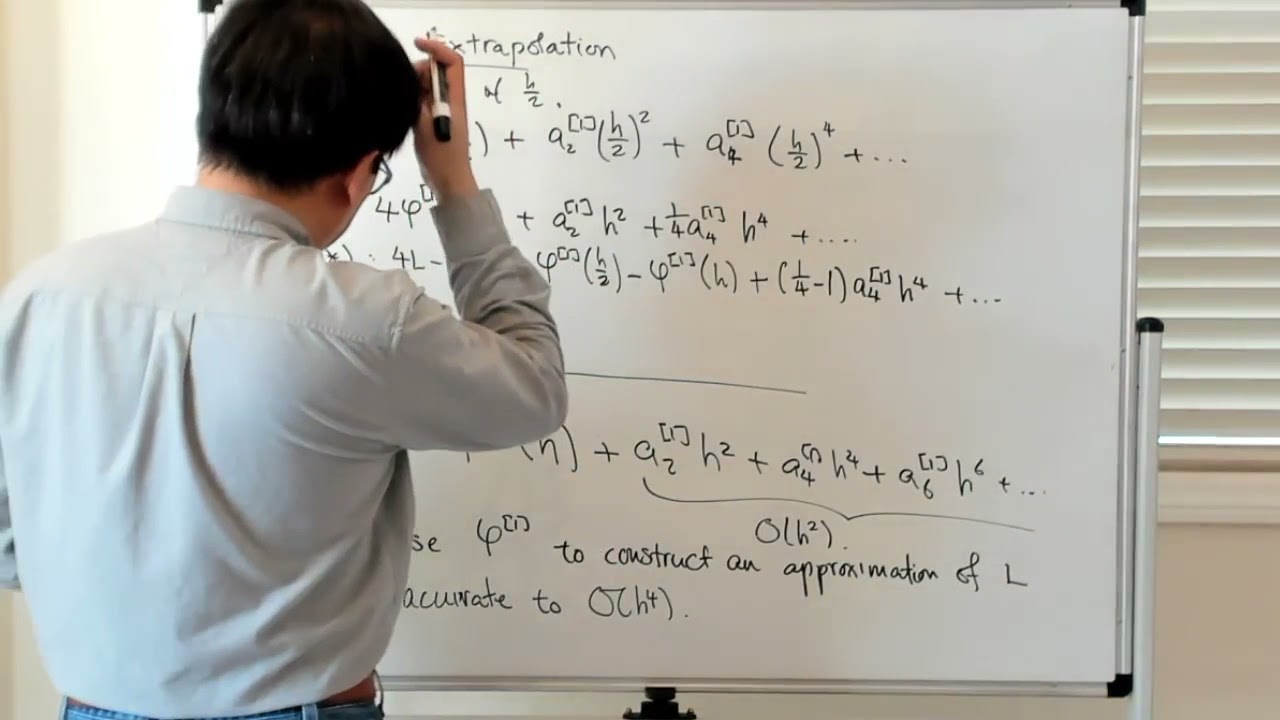 Extrapolation
of h/2.
) + a₂^[1] (h/2)² + a₄^[1] (h/2)⁴ + ...
4φ^[ + a₂^[1] h² + 1/4 a₄^[1] h⁴ + ....
*) : 4L - φ^[1](h/2) - φ^[1](h) + (1/4 - 1) a₄^[1] h⁴ + ...
(h) + a₂^[1] h² + a₄^[1] h⁴ + a₆^[1] h⁶ + ...
O(h²).
se φ^[1] to construct an approximation of L
accurate to O(h⁴).